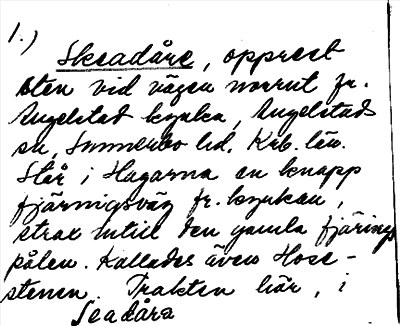 1.)
Skeadåre, opprest
sten vid vägen norrut fr.
Angelstad kyrka, Angelstads
sn, Sunnerbo hd. Krb. län.
Står i Hagarna en knapp
fjärningsväg fr. kyrkan,
strax intill den gamla fjärings
pålen. Kallades även Hose-
stenen. Trakten här, i
Seadåra